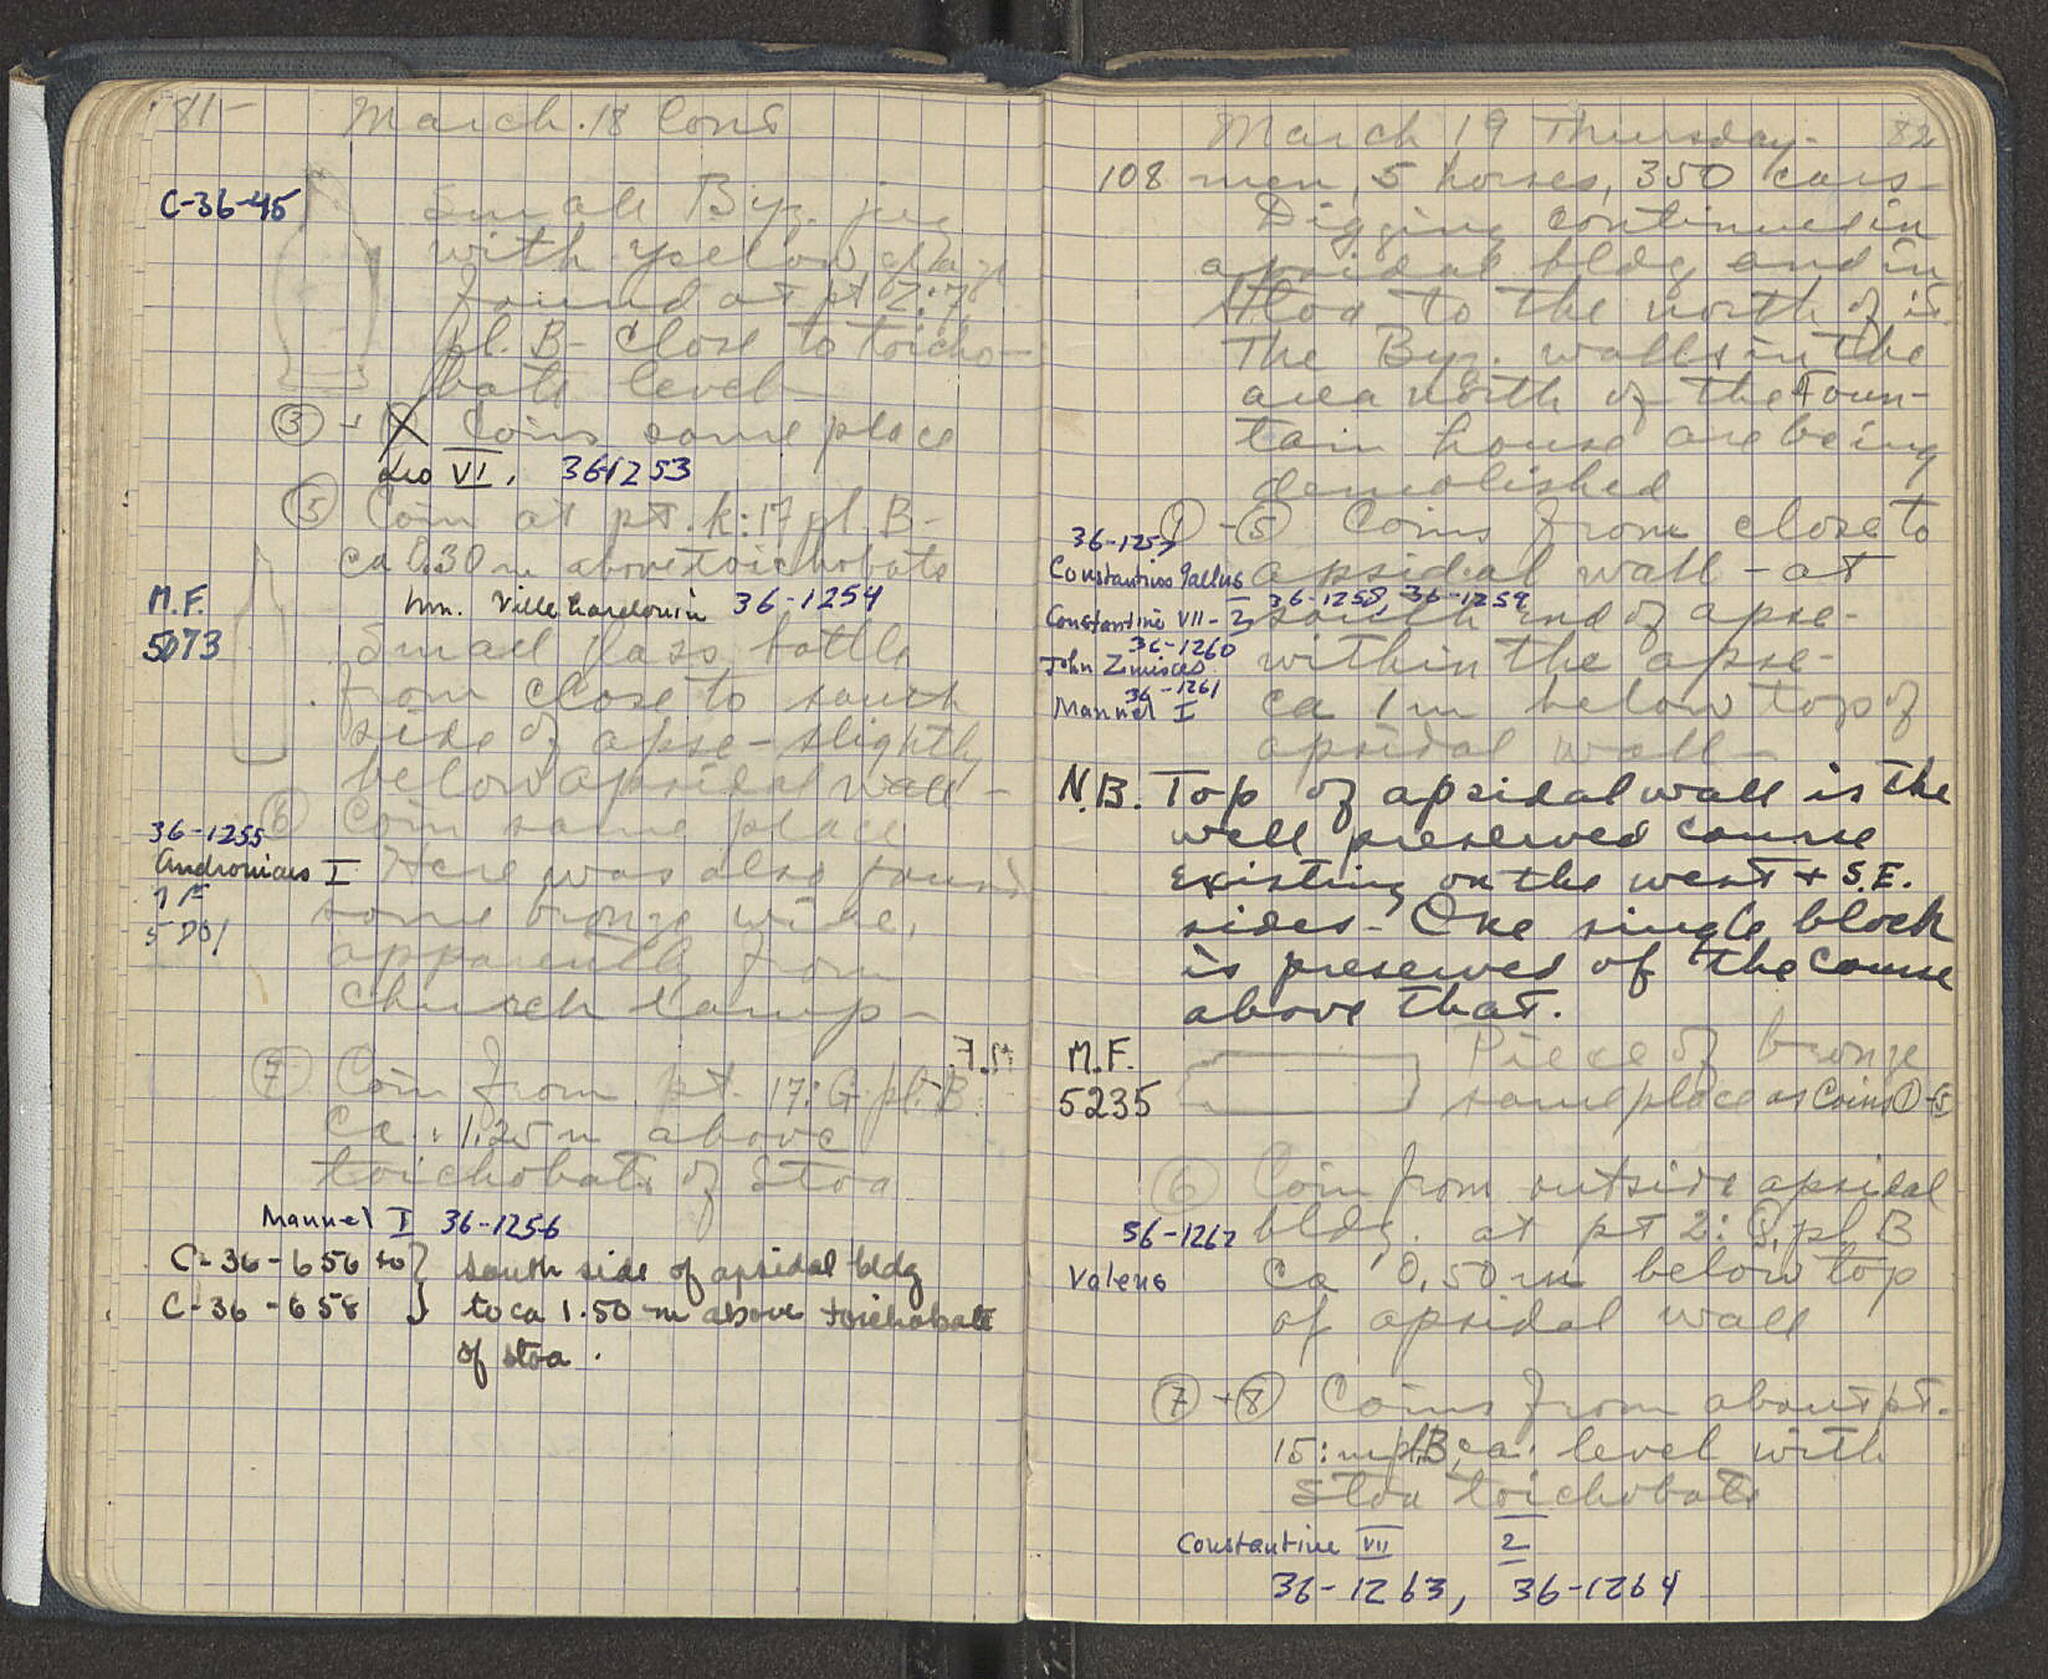 81-
March. 18 Cont
C-36-45
Small Byz. jug
with yellow glaze
found at pt Z:7,
pl. B- Close to toicho-
bate level-
③ + Coins same place
Leo VI, 36-1253
⑤ Coin at pt. K:17 pl. B-
ca 0.30 m above toichobate
Wm. Villehardouin 36-1254
M.F.
5073
Small glass bottle
from close to south
side of apse - slightly
below apsidal wall -
⑥ Coin same place
36-1255
Andronicus I
Here was also found
some bronze wire,
apparently from
church lamp-
⑦ Coin from pt. 17:G pl. B
Ca. 1.25 m above
toichobate of Stoa
Manuel I 36-1256
C-36-656 to } south side of apsidal bldg
C-36-658 } to ca 1.50 m above toichobate
of stoa.
March 19 Thursday- 82
108 men, 5 horses, 350 cars-
Digging continued in
apsidal bldg and in
Stoa to the north of it.
The Byz. walls in the
area north of the Foun-
tain house are being
demolished
① - ⑤ Coins from close to
36-1257
Constantius Gallus
apsidal wall - at
36-1258, 36-1259
Constantine VII - 2
south end of apse-
36-1260
John Zimisces
within the apse-
36-1261
Manuel I
ca 1m below top of
apsidal wall-
N.B. Top of apsidal wall is the
well preserved course
existing on the west + S.E.
sides - One single block
is preserved of the course
above that.
M.F.
5235
Piece of bronze
same place as Coins ①-5
⑥ Coin from outside apsidal
36-1262
bldg. at pt 2:Q, pl B
Valens
Ca 0,50 m below top
of apsidal wall
⑦ + ⑧ Coins from about pt.
15:m pl.B, ca. level with
Stoa toichobate
Constantine VII 2
36-1263, 36-1264